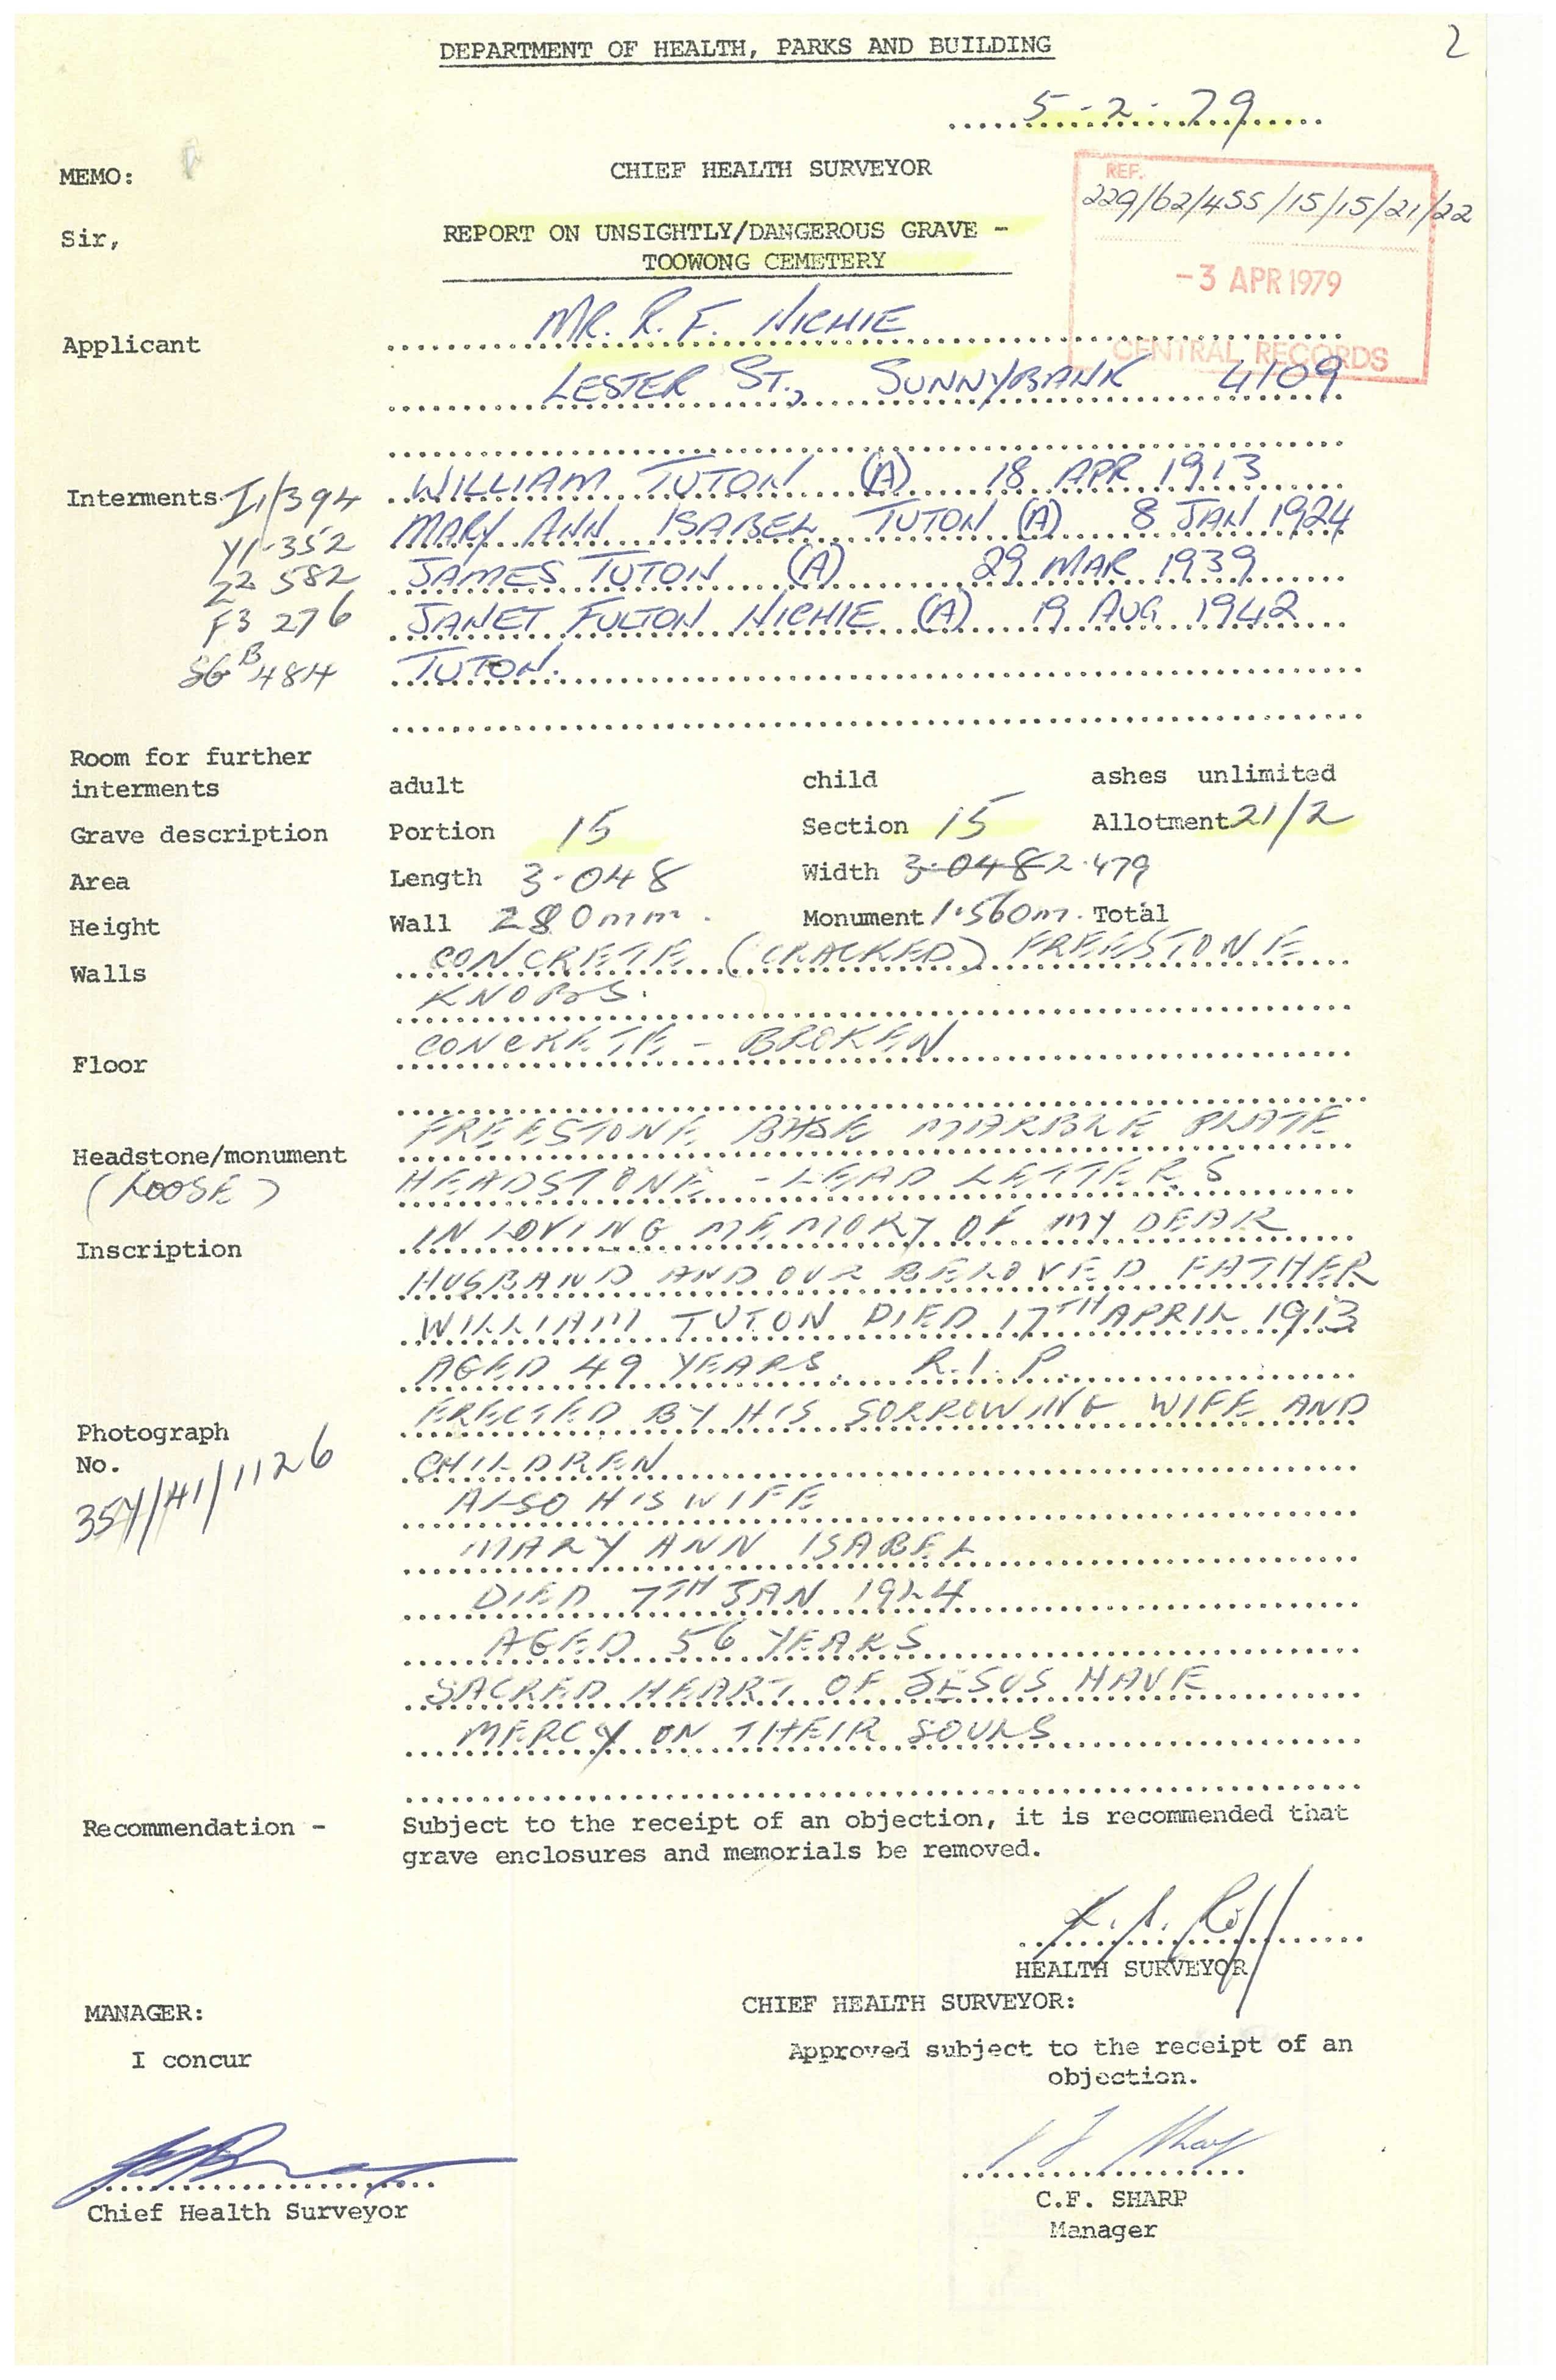 DEPARTMENT OF HEALTH, PARKS AND BUILDING
2
5-2-79
MEMO:
CHIEF HEALTH SURVEYOR
REF.
229/62/455/15/15/21/22
Sir,
REPORT ON UNSIGHTLY/DANGEROUS GRAVE -
TOOWONG CEMETERY
-3 APR 1979
CENTRAL RECORDS
Applicant MR. R. F. NICHIE
LESTER ST., SUNNYBANK 4109
Interments I1/394 WILLIAM TUTON (A) 18 APR 1913
Y1-352 MARY ANN ISABEL TUTON (A) 8 JAN 1924
22 582 JAMES TUTON (A) 29 MAR 1939
F3 276 JANET FULTON NICHIE (A) 19 AUG 1942
SG B 484 TUTON.
Room for further
interments adult child ashes unlimited
Grave description Portion 15 Section 15 Allotment 21/2
Area Length 3.048 Width 3.048 2.479
Height Wall 280mm. Monument 1.560m. Total
Walls CONCRETE (CRACKED) FREESTONE
KNOBS.
Floor CONCRETE - BROKEN
Headstone/monument FREESTONE BASE MARBLE PLATE
(LOOSE) HEADSTONE - LEAD LETTERS
Inscription IN LOVING MEMORY OF MY DEAR
HUSBAND AND OUR BELOVED FATHER
WILLIAM TUTON DIED 17TH APRIL 1913
AGED 49 YEARS. R.I.P.
ERECTED BY HIS SORROWING WIFE AND
Photograph
No. CHILDREN
357/41/1126
ALSO HIS WIFE
MARY ANN ISABEL
DIED 7TH JAN 1924
AGED 56 YEARS
SACRED HEART OF JESUS HAVE
MERCY ON THEIR SOULS
Recommendation - Subject to the receipt of an objection, it is recommended that
grave enclosures and memorials be removed.
HEALTH SURVEYOR
MANAGER:
CHIEF HEALTH SURVEYOR:
I concur
Approved subject to the receipt of an
objection.
Chief Health Surveyor
C.F. SHARP
Manager